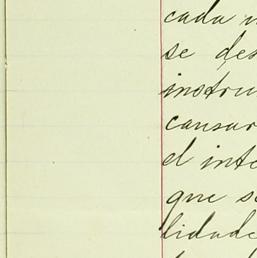 cada
se des
instru
causar
el inte
que se
lidade